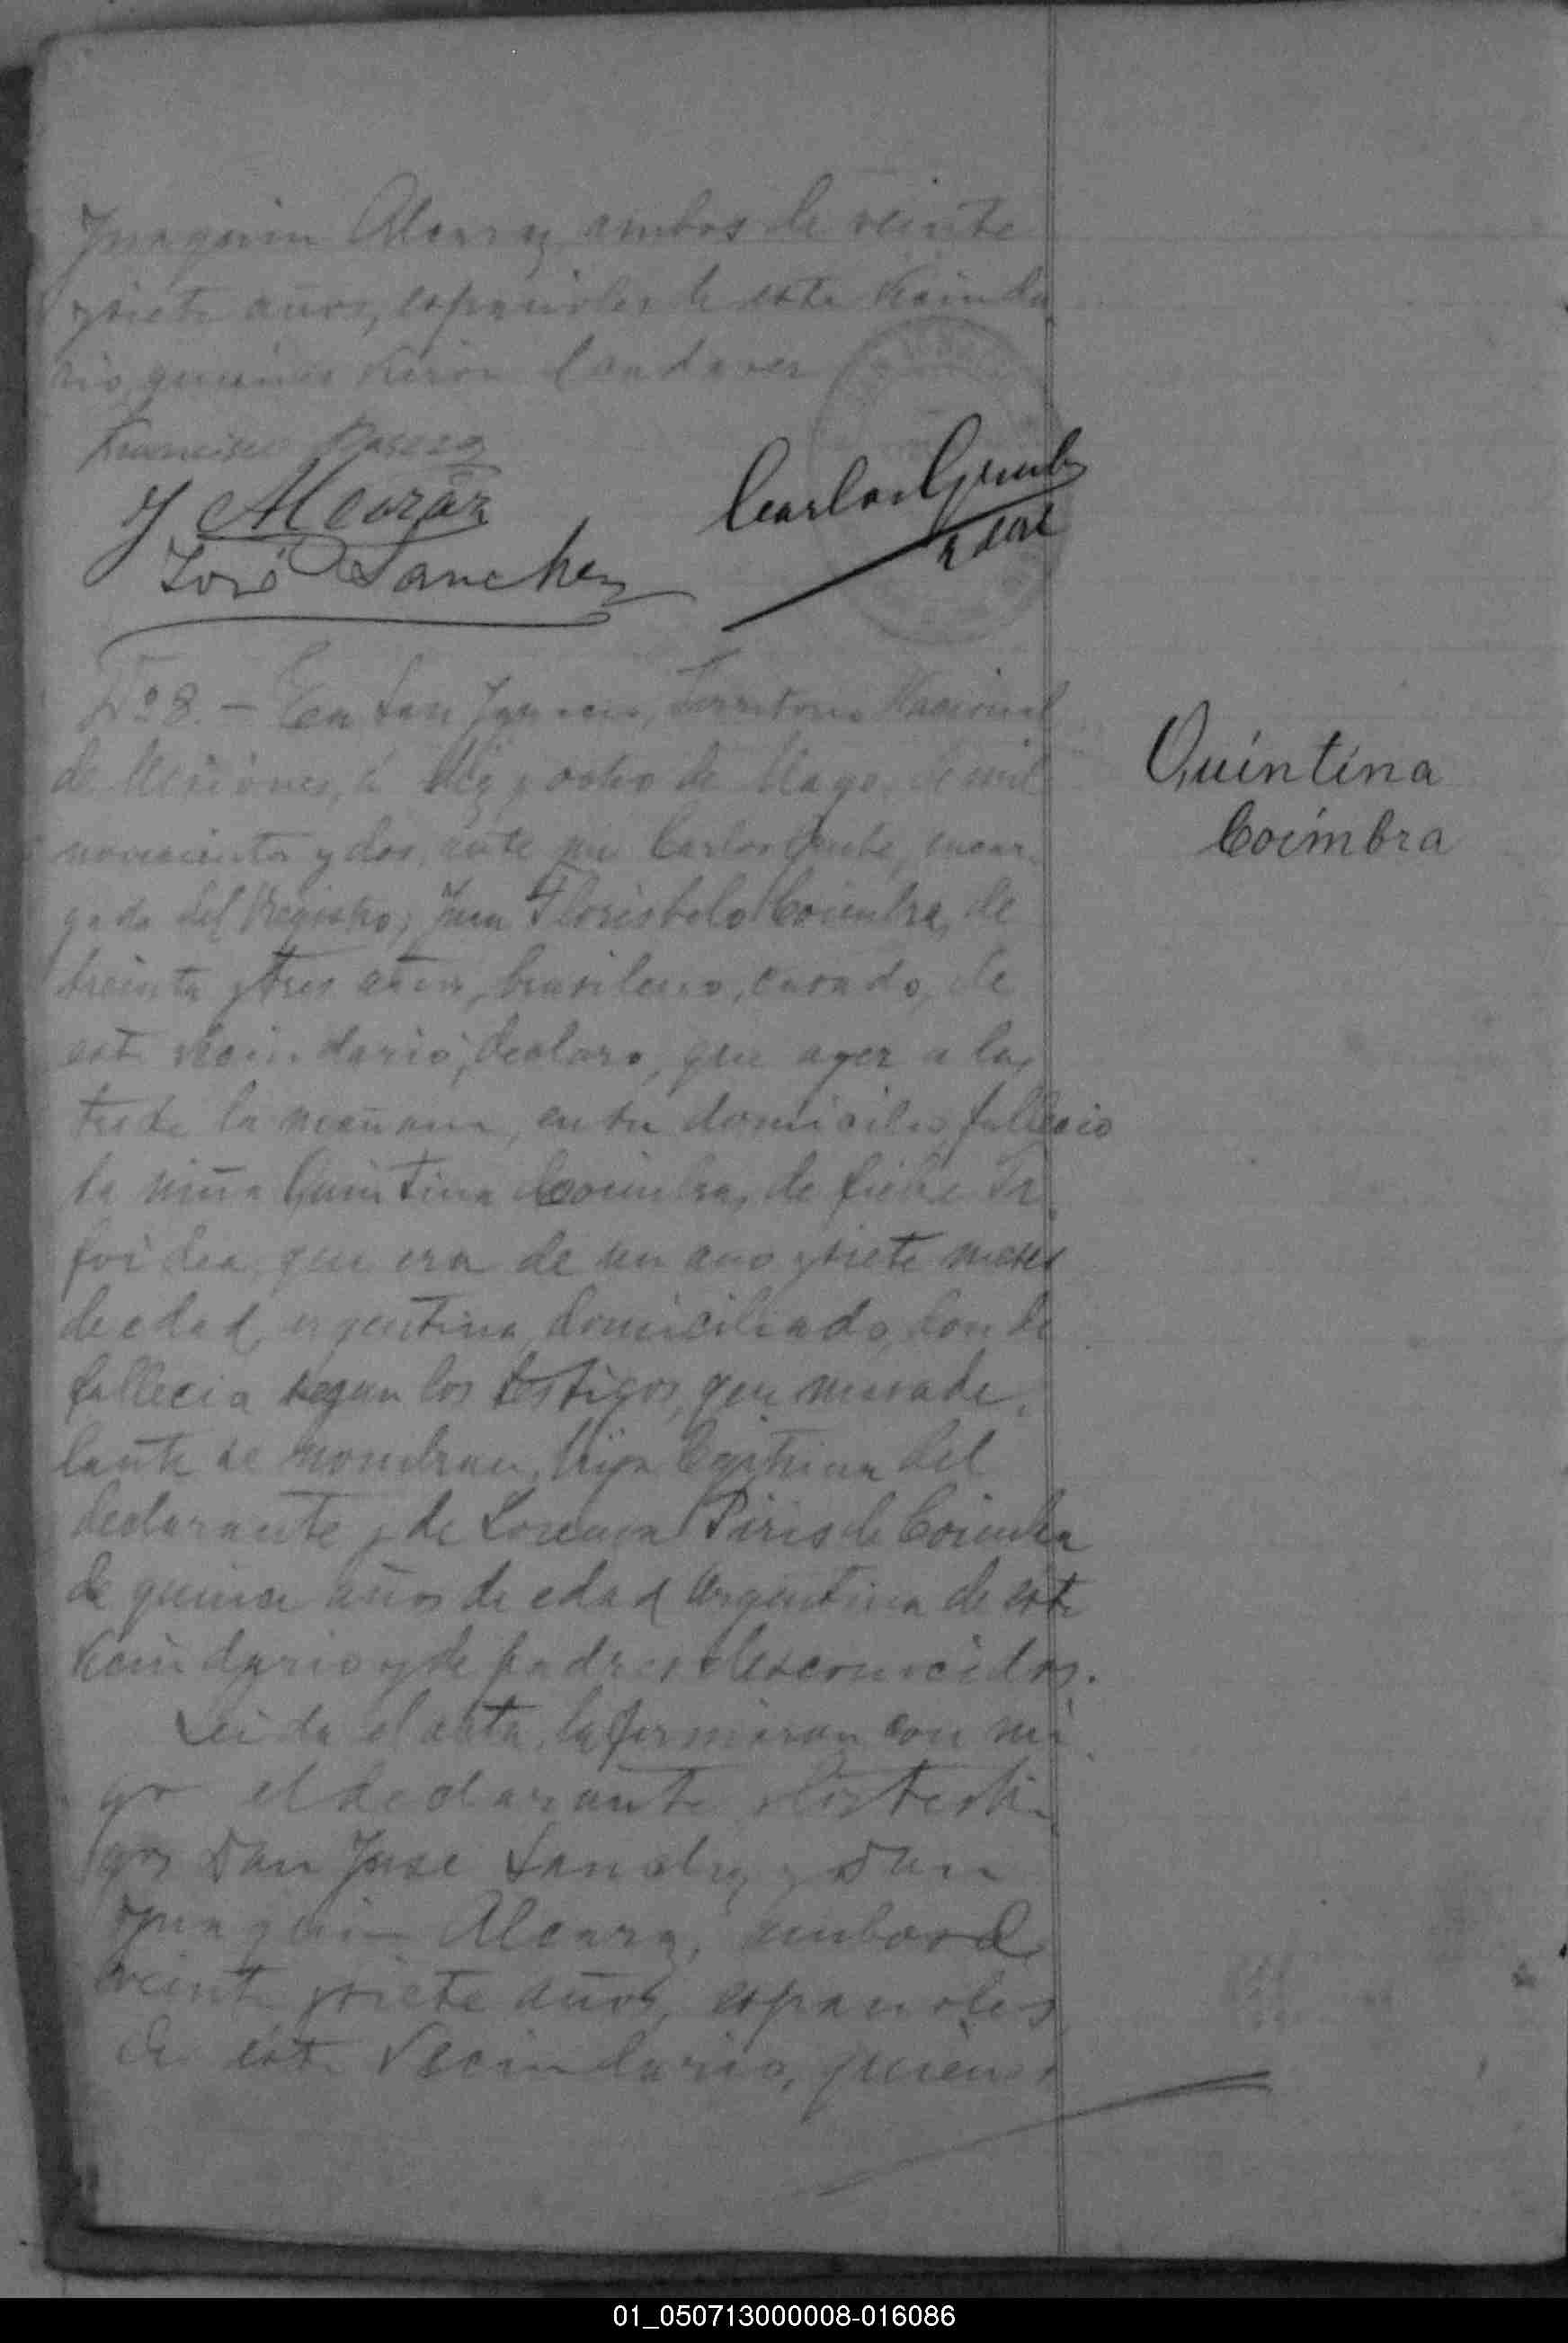 Juaquin Alcaraz, ambos de veinte
y siete años, españoles de este Vecinda
rio, quienes vieron el cadaver
Francisco
J Alcaraz
Carlos
José Sanchez
Nº 8. — En San Ignacio, Territorio Nacional
de Misiones, á diez y ocho de Mayo, de mil
novecientos y dos, ante mi Carlos encar
gado del Registro; Juan Floristelo Coimbra, de
treinta y tres años, brasilero, casado, de
este vecindario, declaro, que ayer a las
tres de la mañana, en su domicilio, fallecio
la niña Quintina Coimbra, de fiebre Ti
foidea, que era de un ano y siete meses
de edad, argentina, domiciliada, donde
fallecia segun los testigos, que mas ade
lante se nombran, hija legitima del
declarante y de Lorenza Piris de Coimbra
de quince años de edad Argentina de este
Vecindario y de padres desconocidos.
Leida el acta, la firmaron con mi
go el declarante y los testi
gos Don Jose Sanchez y Don
Juaquin Alcaraz, ambos de
veinte y siete años, españoles
de este Vecindario, quienes
Quintina
Coimbra
01_050713000008-016086